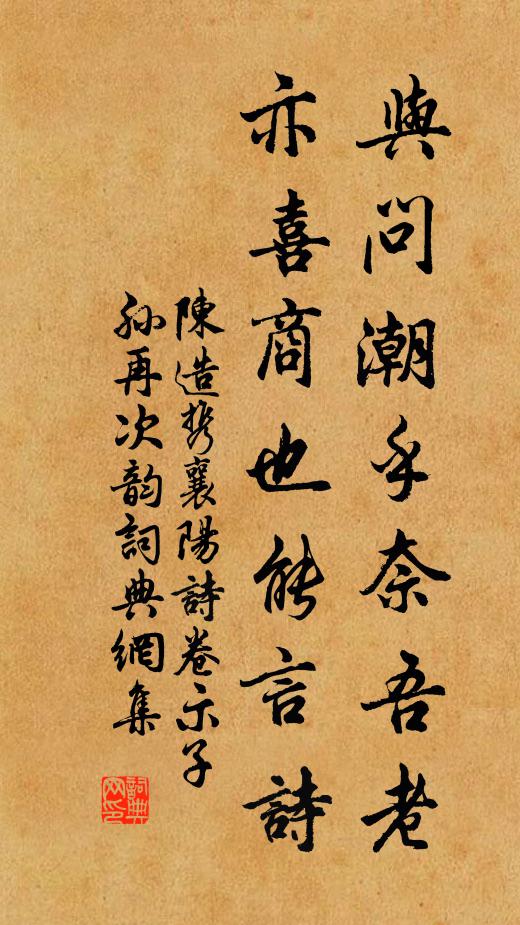 與問潮乎奈吾老
亦喜商也能言詩
陳造携襄陽詩卷示子
孫再次韵詞典網集
詞典
网印